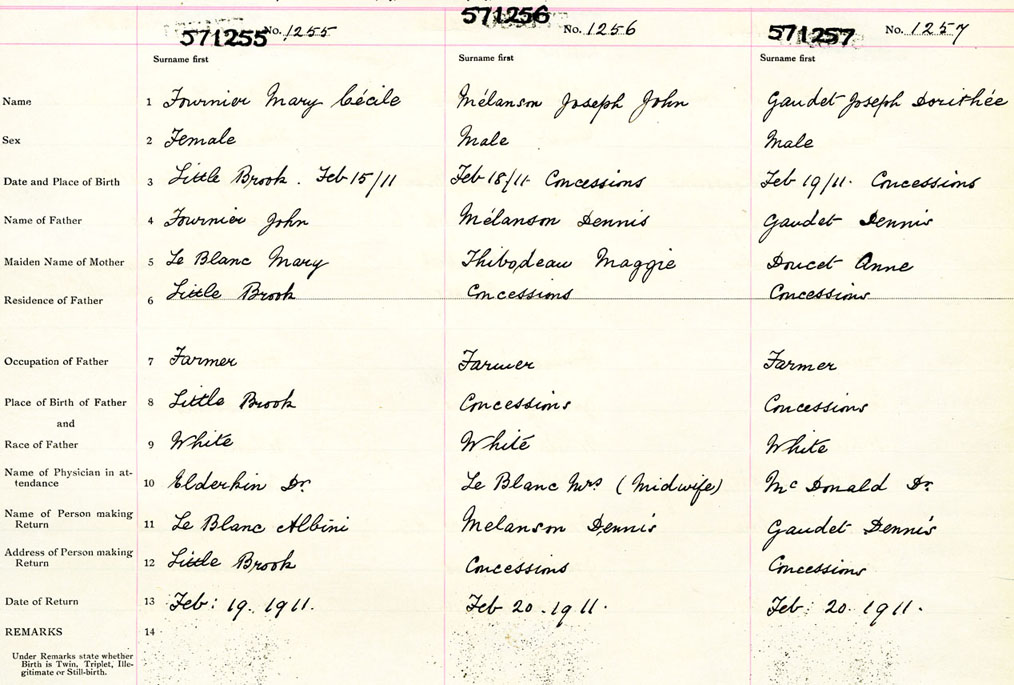 571255 No. 1255 571256 No. 1256 571257 No. 1257
Surname first Surname first Surname first
Name 1 Fournier Mary Cécile Mélanson Joseph John Gaudet Joseph Dorithée
Sex 2 Female Male Male
Date and Place of Birth 3 Little Brook. Feb 15/11 Feb 18/11 Concessions Feb 19/11. Concessions
Name of Father 4 Fournier John Mélanson Dennis Gaudet Dennis
Maiden Name of Mother 5 Le Blanc Mary Thibodeau Maggie Doucet Anne
Residence of Father 6 Little Brook Concessions Concessions
Occupation of Father 7 Farmer Farmer Farmer
Place of Birth of Father 8 Little Brook Concessions Concessions
and
Race of Father 9 White White White
Name of Physician in at-
tendance 10 Elderkin Dr. Le Blanc Mrs (Midwife) Mc Donald Dr.
Name of Person making
Return 11 Le Blanc Albini Melanson Dennis Gaudet Dennis
Address of Person making
Return 12 Little Brook Concessions Concessions
Date of Return 13 Feb: 19. 1911. Feb 20. 1911. Feb: 20. 1911.
REMARKS 14
Under Remarks state whether
Birth is Twin, Triplet, Ille-
gitimate or Still-birth.